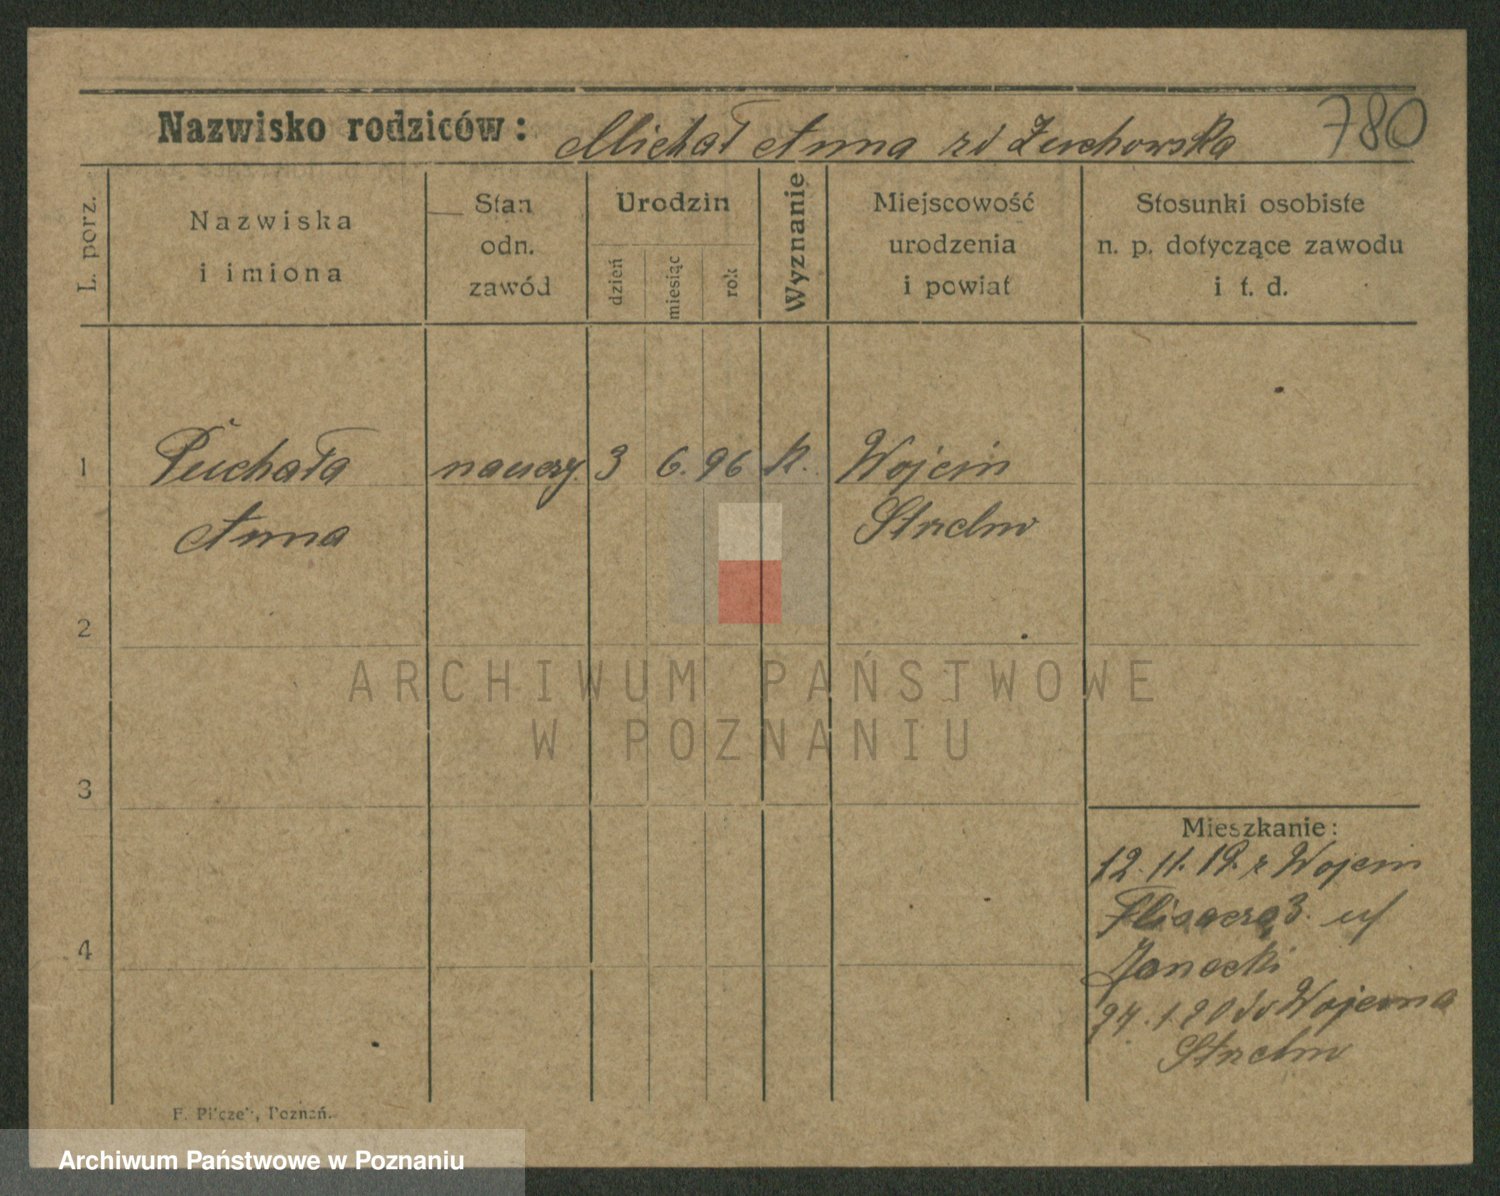 780
Nazwisko rodziców: Michał Anna zd Żuchowska
L. porz.
Nazwiska
i imiona
Stan
odn.
zawód
Urodzin
dzień
miesiąc
rok
Wyznanie
Miejscowość
urodzenia
i powiat
Stosunki osobiste
n. p. dotyczące zawodu
i t. d.
1 Puchała nauczy. 3 6. 96 k. Wojcin
Anna Strzelno
2
ARCHIWUM PAŃSTWOWE
W POZNANIU
3
Mieszkanie:
12. 11. 19. z Wojcin
3. u/
4
Janecki
24. 1 20 do Wojcina
Strzelno
F. Pilczek, Poznań.
Archiwum Państwowe w Poznaniu